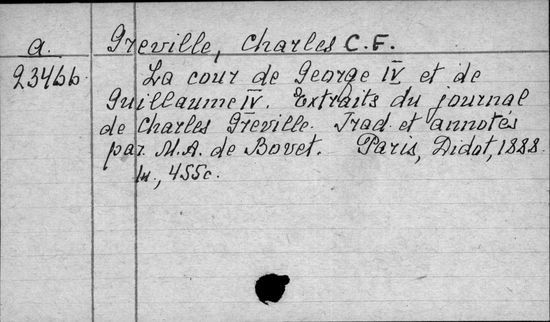 a. Greville, Charles C.F.
23466. La cour de George IV et de
Guillaume IV. Extraits du journal
de Charles Greville. Trad. et annotés
par M.A. de Bovet. Paris, Didot, 1888.
455c.